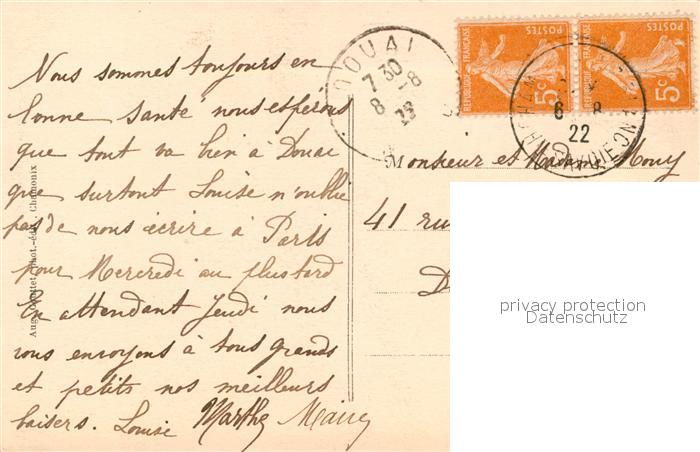 Nous sommes toujours en
bonne santé nous espérons
que tout va bien à Douai
que surtout Louise n'oublie
pas de nous écrire à Paris
pour Mercredi au plus tard
En attendant Jeudi nous
vous envoyons à tous grands
et petits nos meilleurs
baisers. Louise Marthe
Aug. phot.-édit., Chamonix
DOUAI
7 30
8 -8
REPUBLIQUE FRANÇAISE
POSTES
5c
REPUBLIQUE FRANÇAISE
POSTES
5c
6 8
22
Monsieur et Madame
41 rue
D
privacy protection
Datenschutz